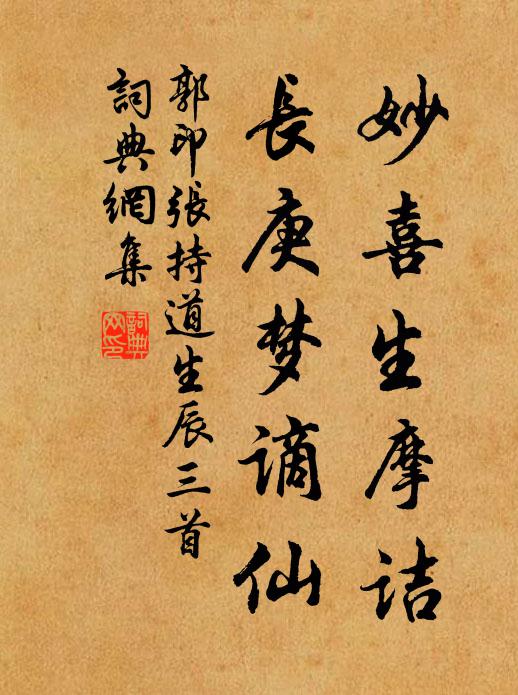 妙喜生摩诘
長庚梦谪仙
郭印張持道生辰三首
詞典網集
詞典网印